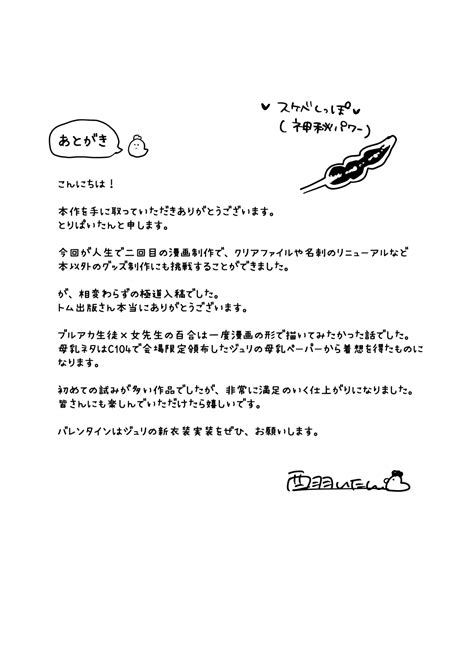 スケベしっぽ
(神秘パワー)
あとがき
こんにちは!
本作を手に取っていただきありがとうございます。
とりぱいたんと申します。
今回が人生で二回目の漫画制作で、クリアファイルや名刺のリニューアルなど
本以外のグッズ制作にも挑戦することができました。
が、相変わらずの極道入稿でした。
トム出版さん本当にありがとうございます。
ブルアカ生徒×女先生の百合は一度漫画の形で描いてみたかった話でした。
母乳ネタはC104で会場限定頒布したジュリの母乳ペーパーから着想を得たものに
なります。
初めての試みが多い作品でしたが、非常に満足のいく仕上がりになりました。
皆さんにも楽しんでいただけたら嬉しいです。
バレンタインはジュリの新衣装実装をぜひ、お願いします。
酉羽いたん